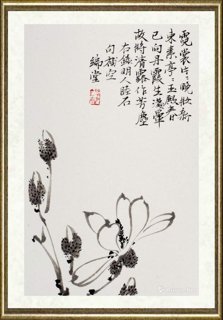 霓裳片々晚妝新
束素亭々玉殿春
已向丹霞生淺暈
故將清露作芳塵
右錄明人睦石